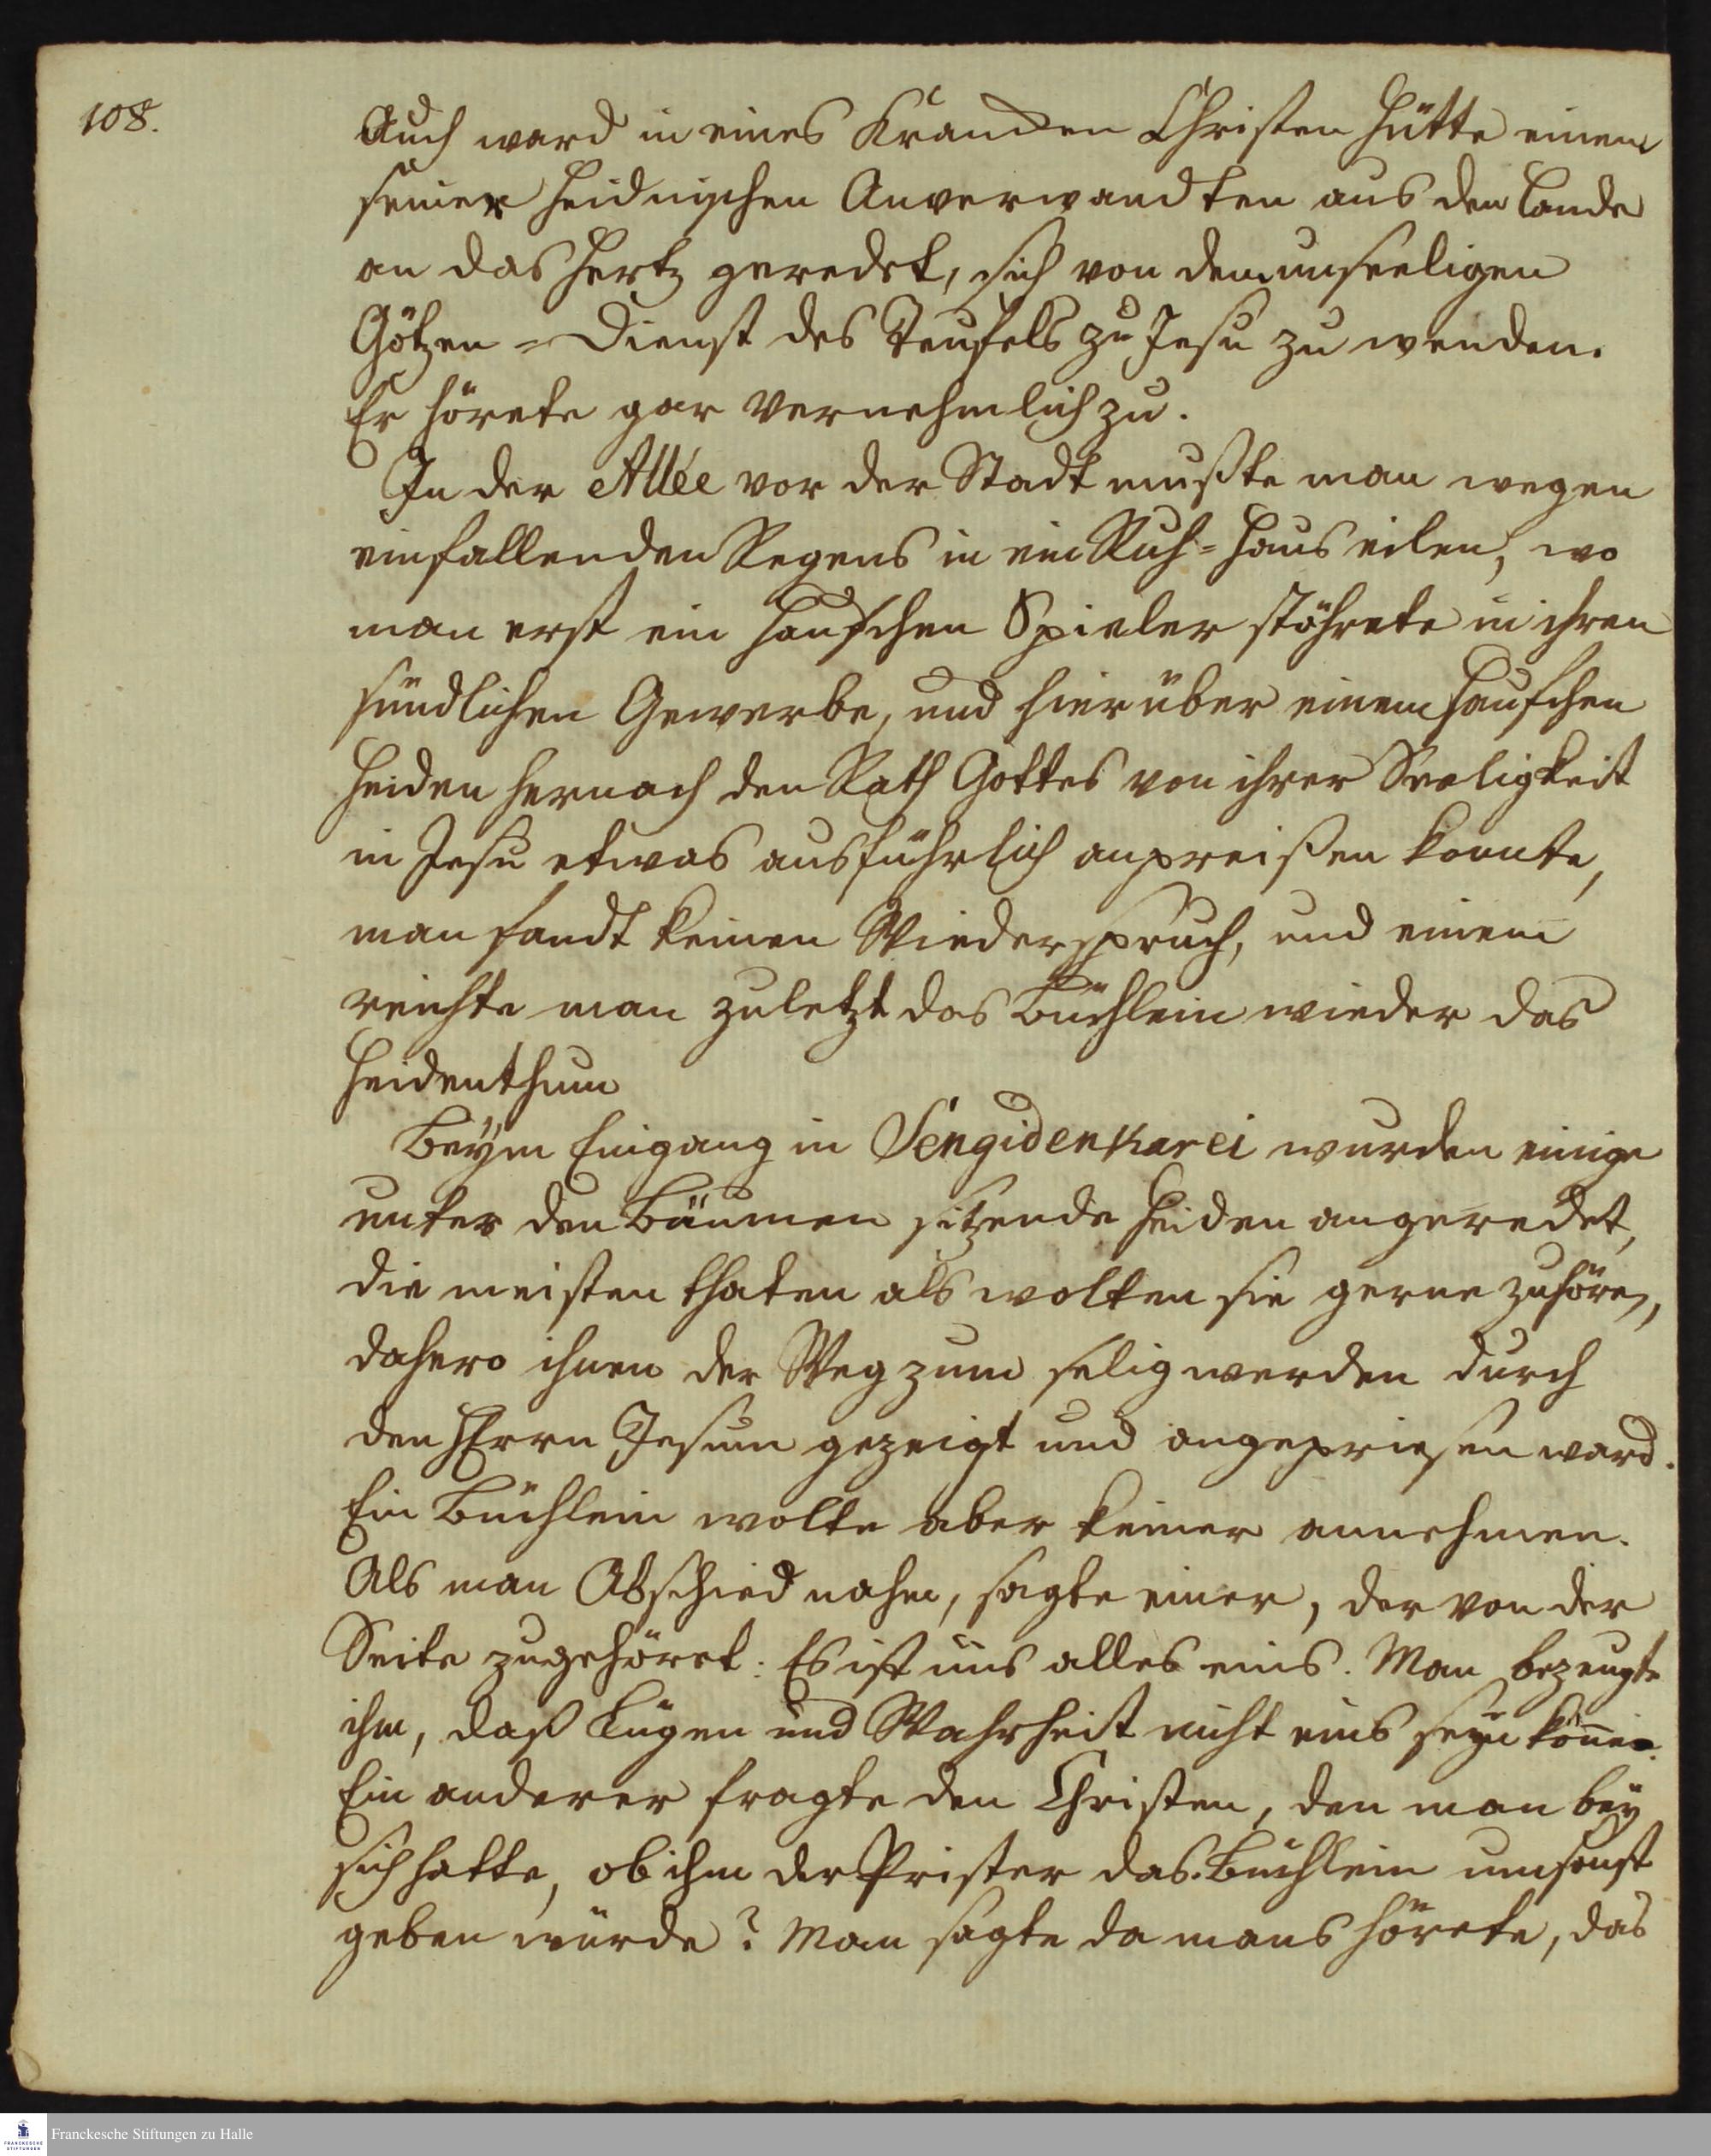 108.
Auch ward in eines Krancken Christen Hütte einem
seiner Heidnischen Anverwandten aus den Lande
an das Hertz geredet, sich von dem unseeligen
Götzen-Dienst des Teufels zu Jesu zu wenden.
Er hörete gar vernehmlich zu.
In der Allée vor der Stadt mußte man wegen
einfallenden Regens in ein Ruh-Haus eilen, wo
man erst ein Haufchen Spieler stöhrete in ihren
sündlichen Gewerbe, und hierüber einem Haufchen
Heiden hernach den Rath Gottes von ihrer Seeligkeit
in Jesu etwas ausführlich anpreißen konnte,
man fandt keinen Wiederspruch, und einem
reichte man zuletzt das Büchlein wieder das
Heidenthum
Beÿm Eingang in Sengidenkarei wurden einige
unter den Bäumen sitzende Heiden angeredet,
die meisten thaten als wolten sie gerne zuhören,
dahero ihnen der Weg zum selig werden durch
den HErrn Jesum gezeigt und angepriesen ward.
Ein Büchlein wolte aber keiner annehmen.
Als man Abschied nahm, sagte einer, der von der
Seite zugehöret: Es ist uns alles eins. Man bezeugte
ihm, daß Lügen und Wahrheit nicht eins seyn könne.
Ein anderer fragte den Christen, den man beÿ
sich hatte, ob ihm der Prister das Büchlein umsonst
geben würde? Man sagte da mans hörete, das
Franckesche Stiftungen zu Halle
FRANCKESCHE
STIFTUNGEN